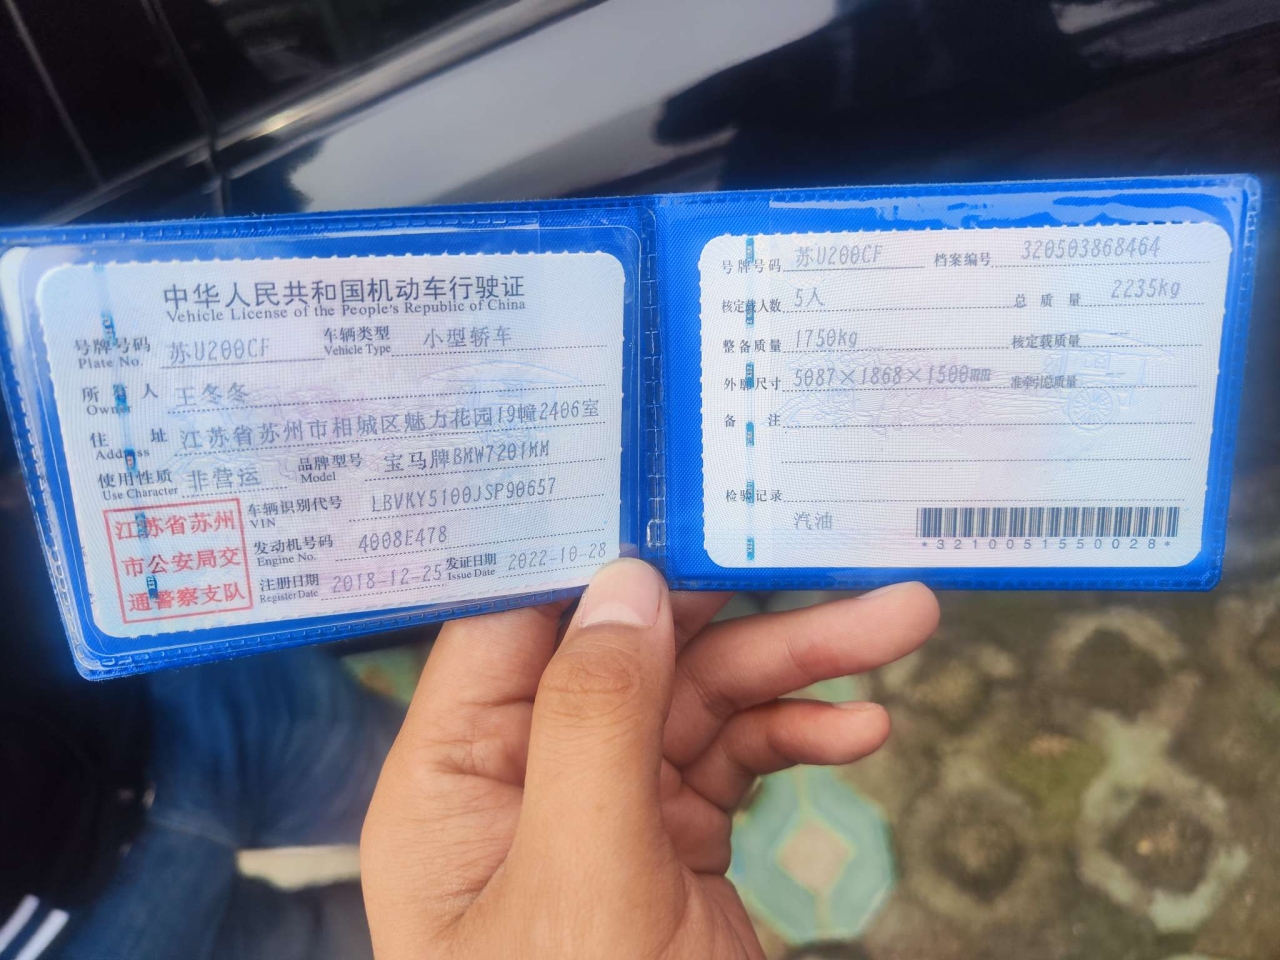 中华人民共和国机动车行驶证
Vehicle License of the People's Republic of China
号牌号码 苏U200CF 车辆类型 小型轿车
Plate No. Vehicle Type
所有人 王冬冬
Owner
住址 江苏省苏州市相城区魅力花园19幢2406室
Address
使用性质 非营运 品牌型号 宝马牌BMW7201MM
Use Character Model
车辆识别代号 LBVKY5100JSP90657
VIN
发动机号码 4008E478
Engine No.
注册日期 2018-12-25 发证日期 2022-10-28
Register Date Issue Date
江苏省苏州
市公安局交
通警察支队
号牌号码 苏U200CF 档案编号 320503868464
核定载人数 5人 总质量 2235kg
整备质量 1750kg 核定载质量
外廓尺寸 5087×1868×1500mm 准牵引总质量
备注
检验记录
汽油
*3210051550028*